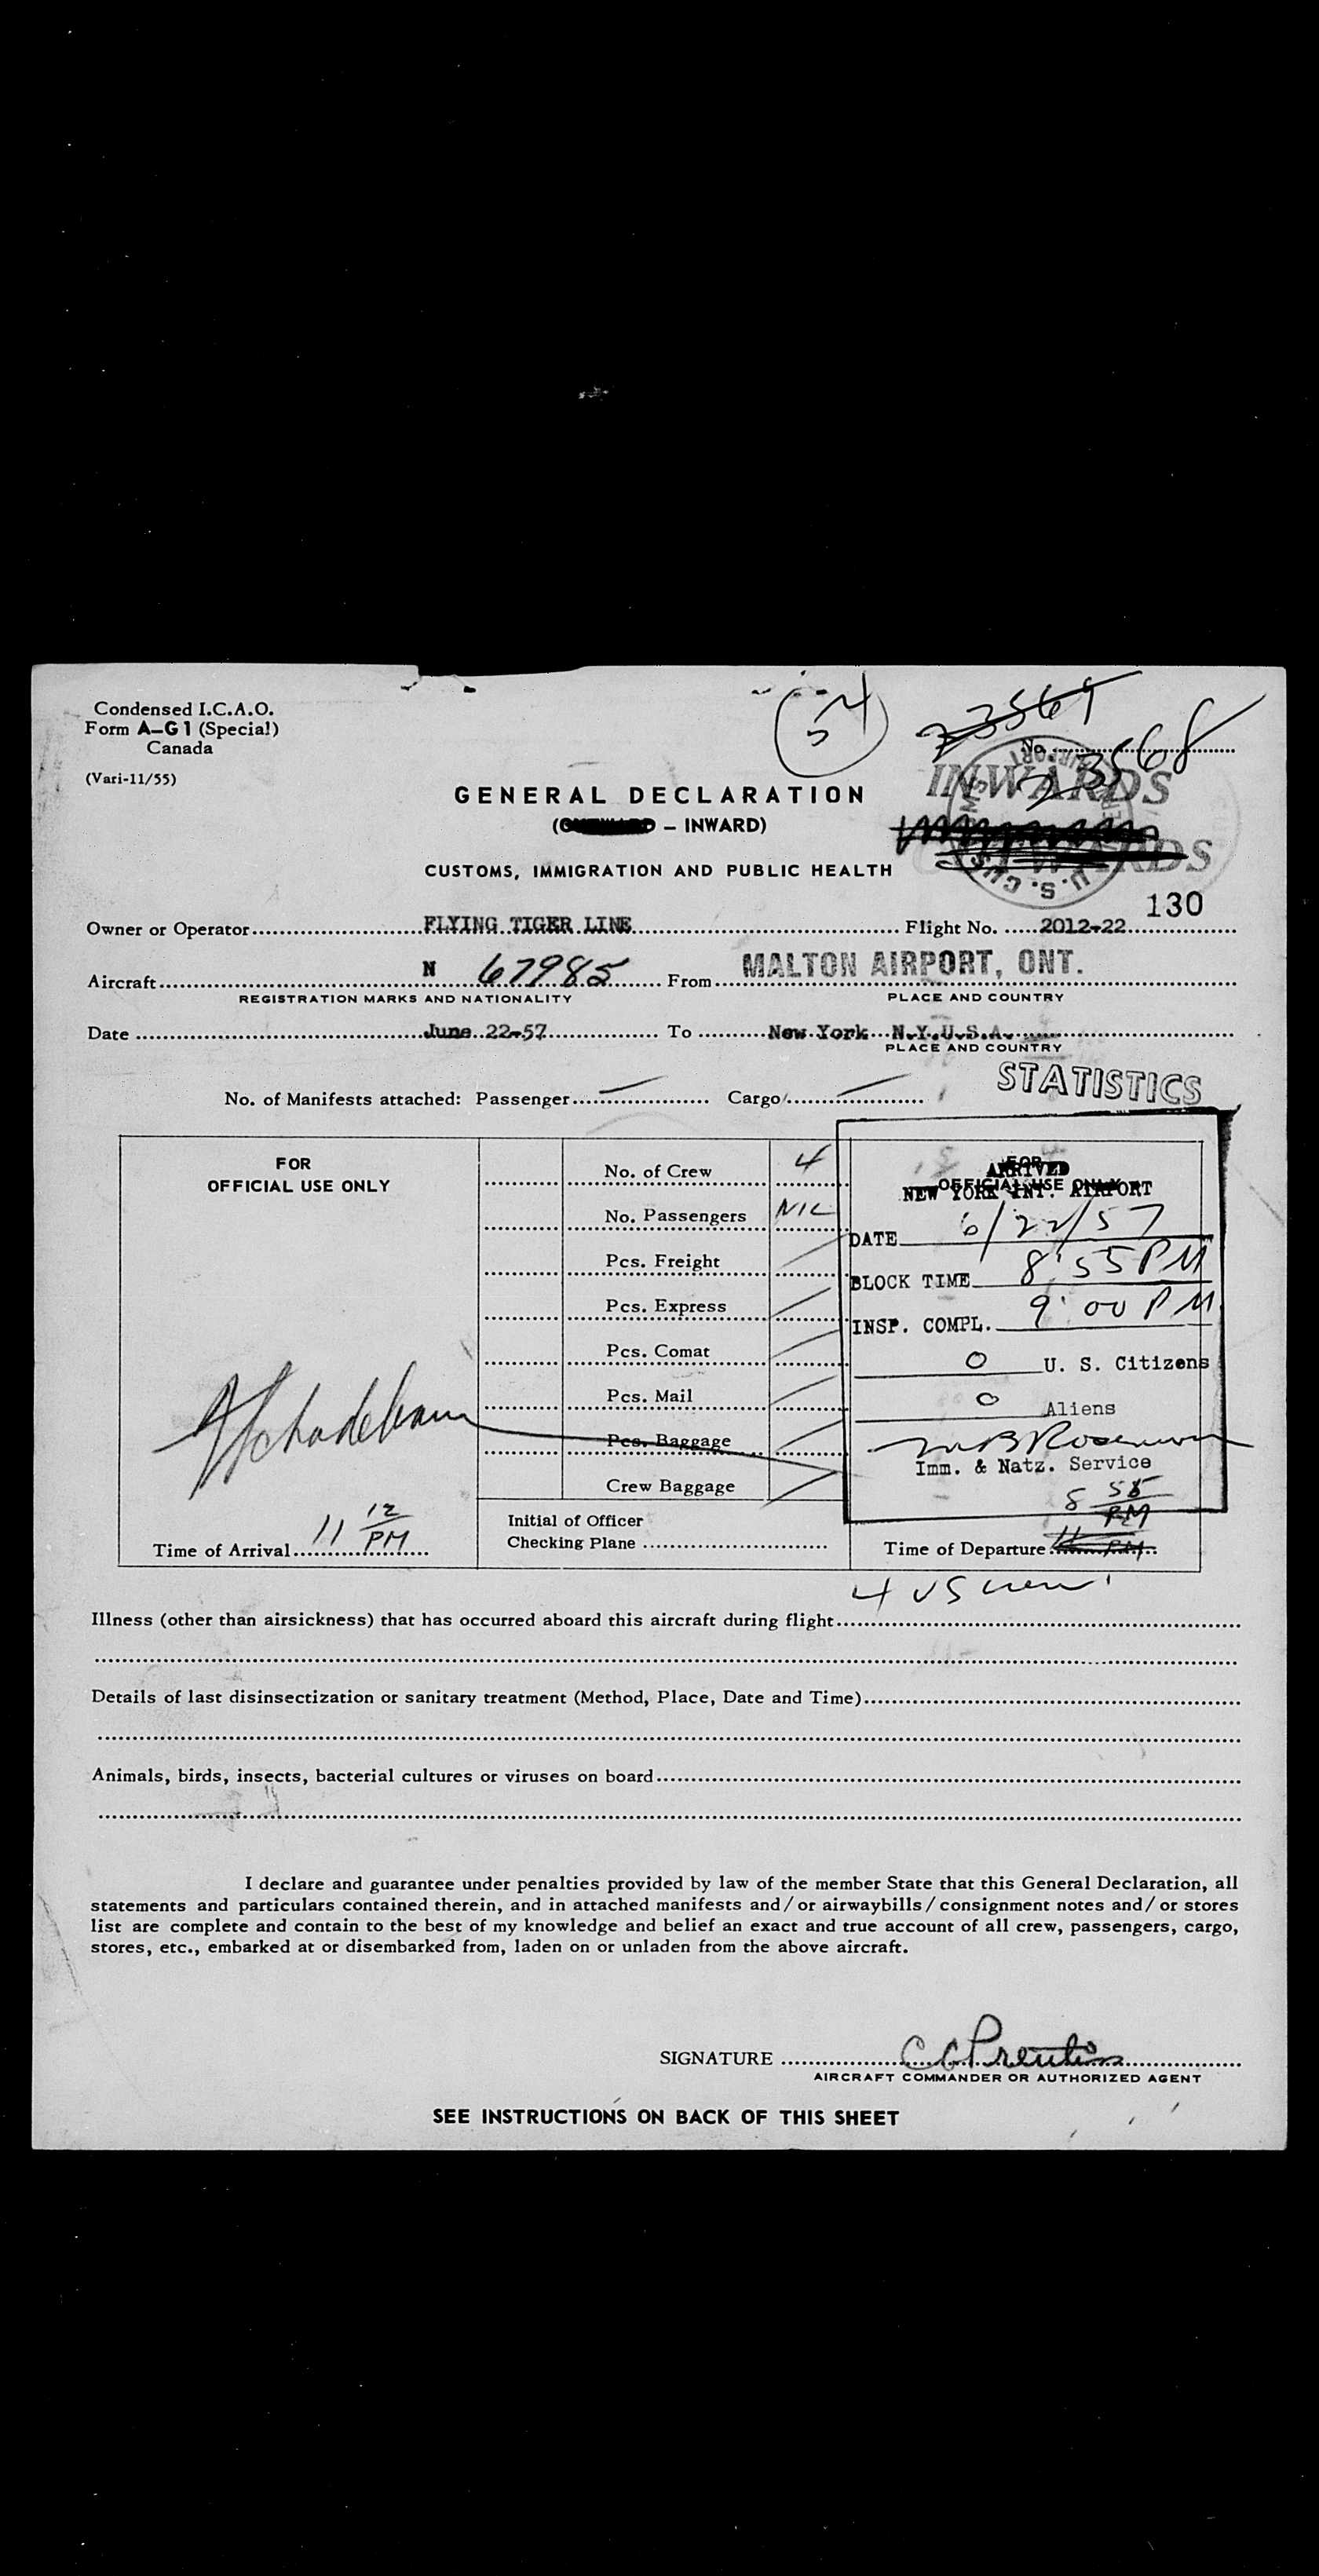 Condensed I.C.A.O.
Form A-G1 (Special)
Canada
(Vari-11/55)
54
23569
No.
23568
INWARDS
U.S. CUSTOMS
GENERAL DECLARATION
( – INWARD)
CUSTOMS, IMMIGRATION AND PUBLIC HEALTH
130
Owner or Operator FLYING TIGER LINE Flight No. 2012-22
Aircraft N 67985 From MALTON AIRPORT, ONT.
REGISTRATION MARKS AND NATIONALITY PLACE AND COUNTRY
Date June 22-57 To New York N.Y.U.S.A.
PLACE AND COUNTRY
STATISTICS
No. of Manifests attached: Passenger Cargo
FOR
OFFICIAL USE ONLY
No. of Crew 4
No. Passengers NIL
Pcs. Freight
Pcs. Express
Pcs. Comat
Pcs. Mail
Pcs. Baggage
Crew Baggage
Initial of Officer
Checking Plane
Time of Arrival 11 12 PM
FOR
OFFICIAL USE ONLY
ARRIVED
NEW YORK INT. AIRPORT
DATE 6/22/57
BLOCK TIME 8:55 PM
INSP. COMPL. 9:00 PM
0 U. S. Citizens
0 Aliens
Imm. & Natz. Service
8 55 PM
Time of Departure 11 PM
4 US crew
Illness (other than airsickness) that has occurred aboard this aircraft during flight
Details of last disinsectization or sanitary treatment (Method, Place, Date and Time)
Animals, birds, insects, bacterial cultures or viruses on board
I declare and guarantee under penalties provided by law of the member State that this General Declaration, all
statements and particulars contained therein, and in attached manifests and/or airwaybills/consignment notes and/or stores
list are complete and contain to the best of my knowledge and belief an exact and true account of all crew, passengers, cargo,
stores, etc., embarked at or disembarked from, laden on or unladen from the above aircraft.
SIGNATURE C C Prentiss
AIRCRAFT COMMANDER OR AUTHORIZED AGENT
SEE INSTRUCTIONS ON BACK OF THIS SHEET